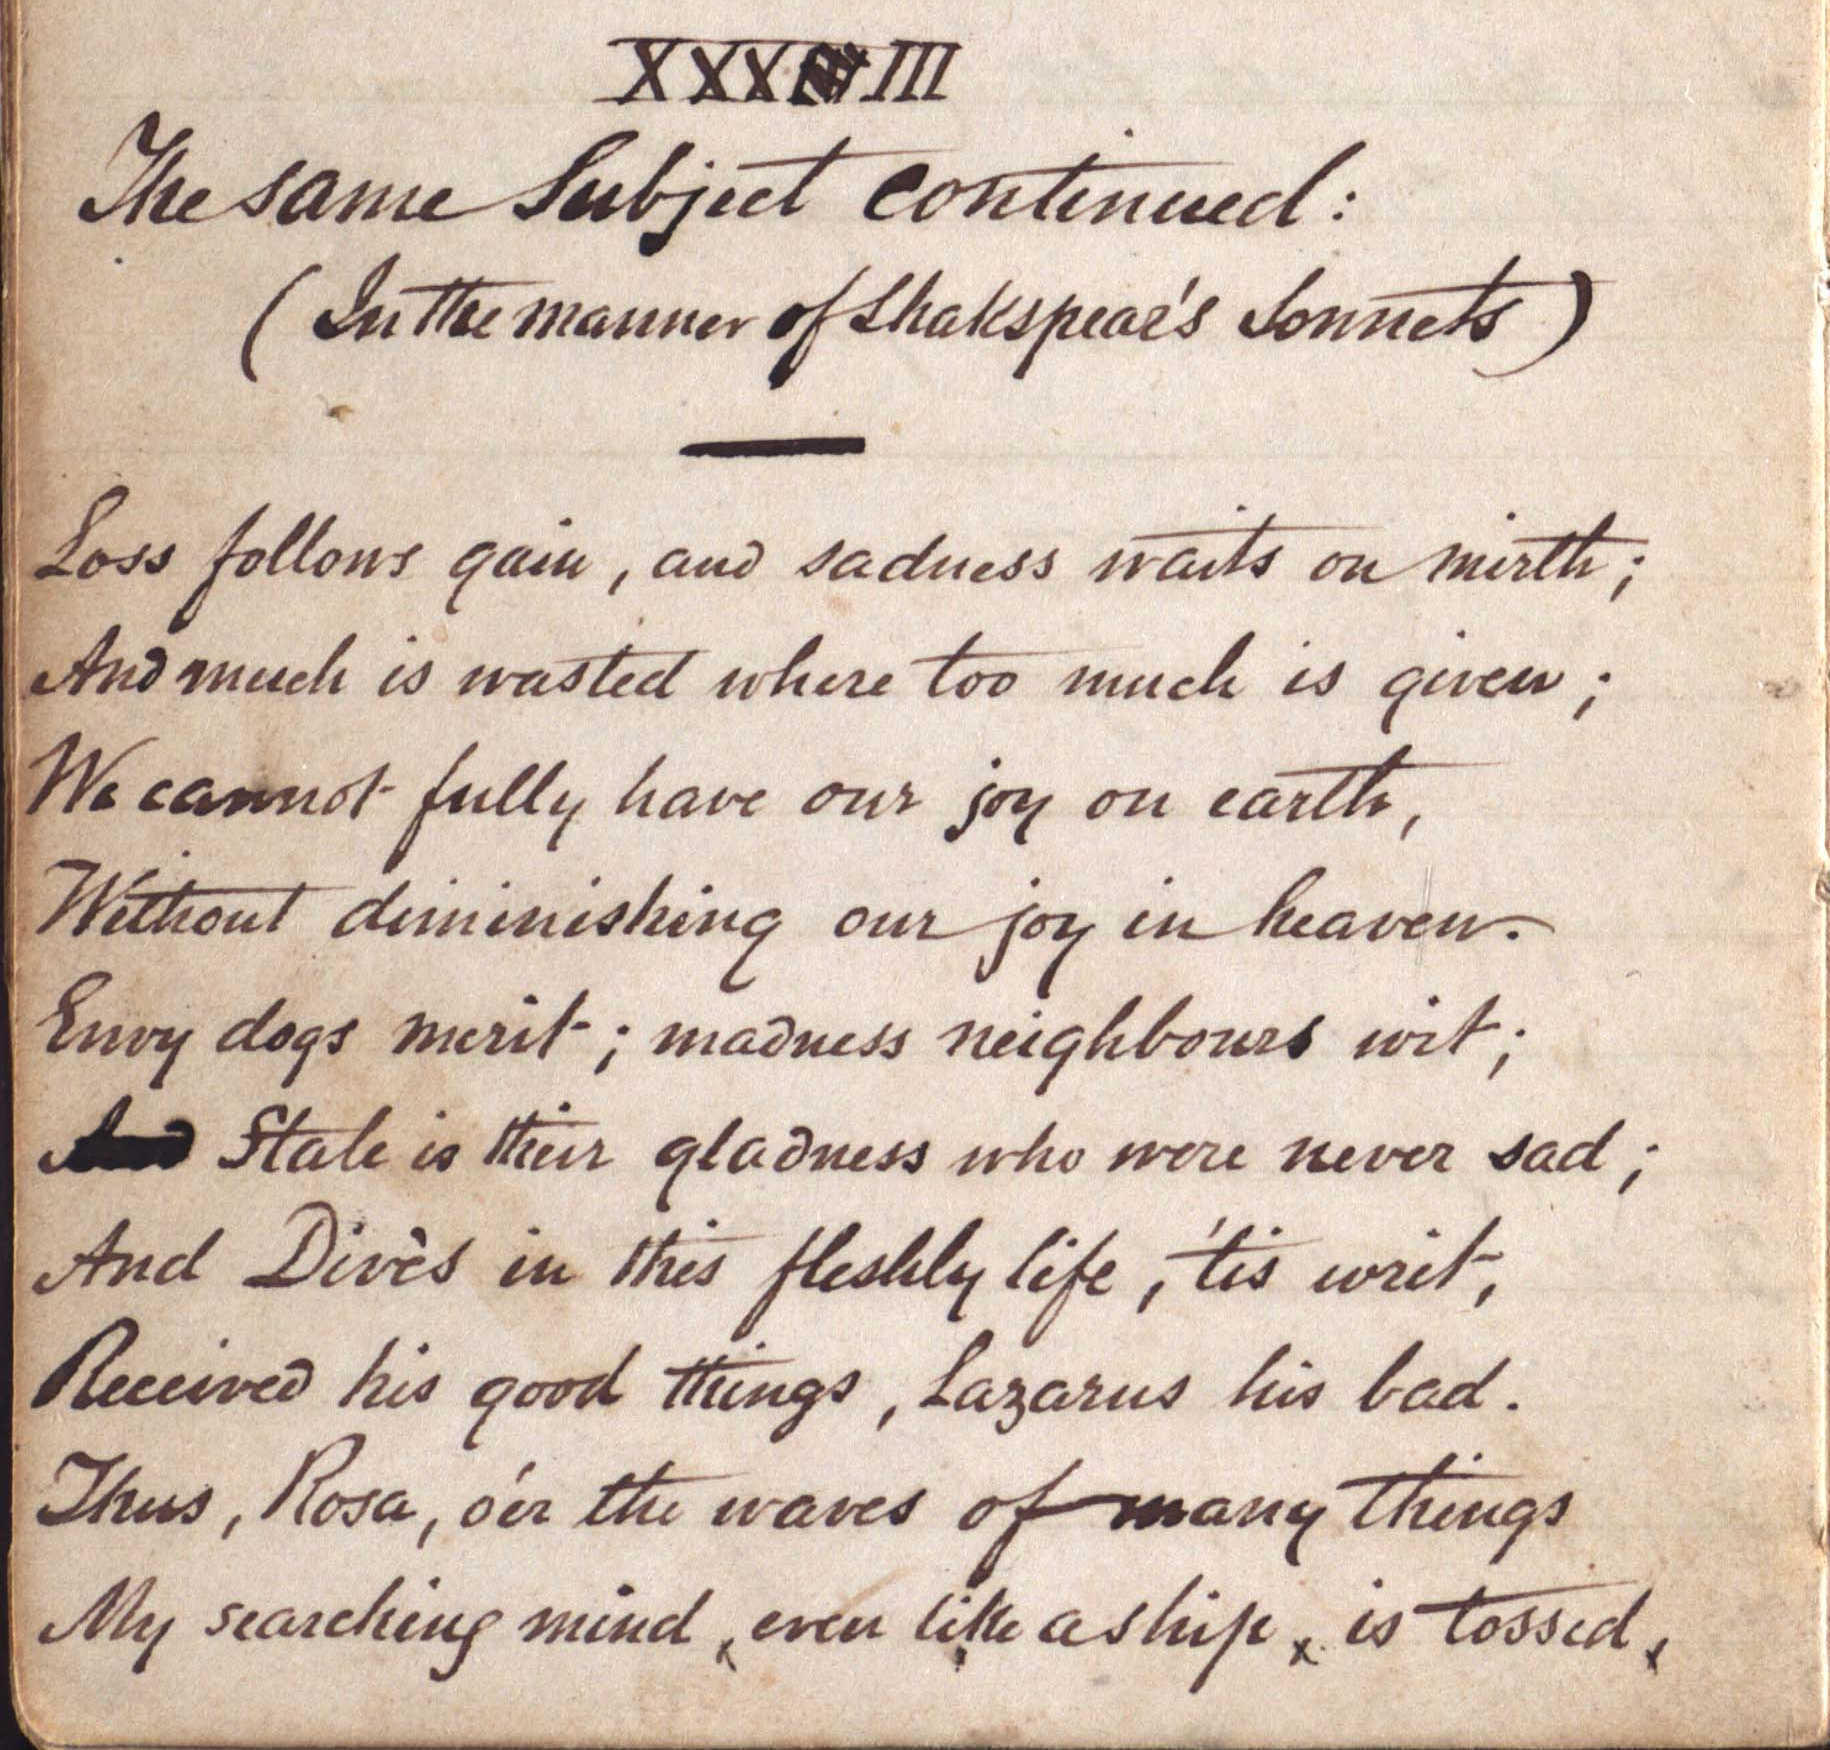 XXXIII
The same Subject continued:
(In the manner of Shakspear's Sonnets)
Loss follows gain, and sadness waits on mirth;
And much is wasted where too much is given;
We cannot fully have our joy on earth,
Without diminishing our joy in heaven.
Envy dogs merit; madness neighbours wit;
And Stale is their gladness who were never sad;
And Divès in this fleshly life, 'tis writ,
Received his good things, Lazarus his bad.
Thus, Rosa, o'er the waves of many things
My searching mind, even like a ship, is tossed,